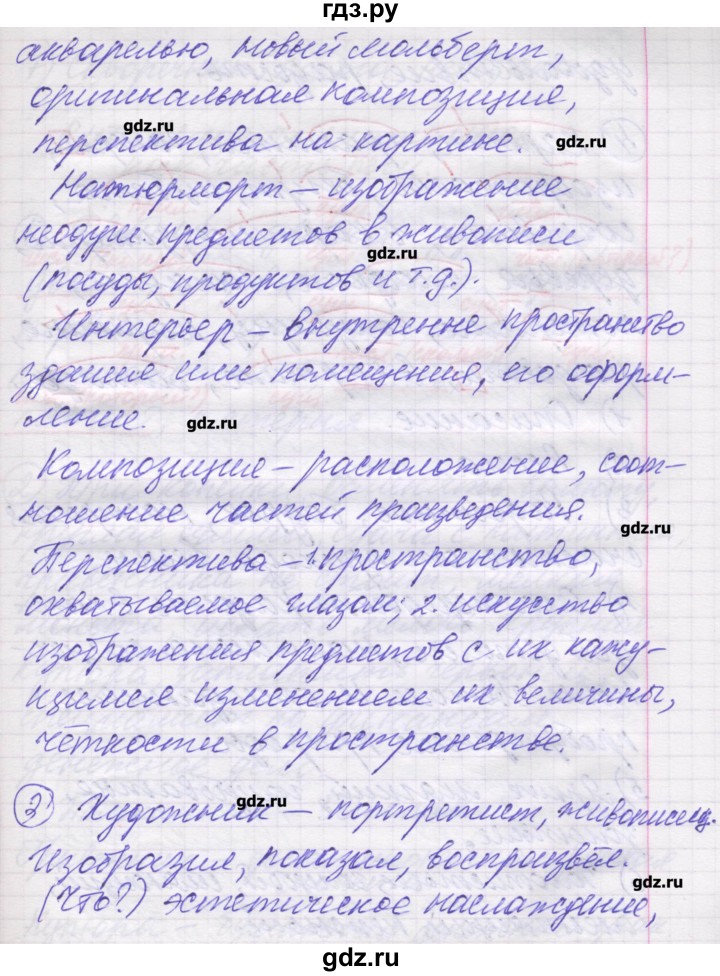 гдз.ру
акварелью, новый мольберт,
оригинальная композиция,
gdz.ru
перспектива на картине.
gdz.ru
Натюрморт – изображение
неодуш. предметов в живописи
gdz.ru
(посуды, продуктов и т.д.).
Интерьер – внутренне пространство
здания или помещения, его оформ-
ление.
gdz.ru
Композиция – расположение, соот-
ношение частей произведения.
gdz.ru
Перспектива – 1. пространство,
охватываемое глазом; 2. искусство
изображения предметов с их кажу-
щимся изменением их величины,
чёткости в пространстве.
gdz.ru
3) Художник – портретист, живописец.
Изобразил, показал, воспроизвёл.
gdz.ru
(Что?) эстетическое наслаждение,
gdz.ru